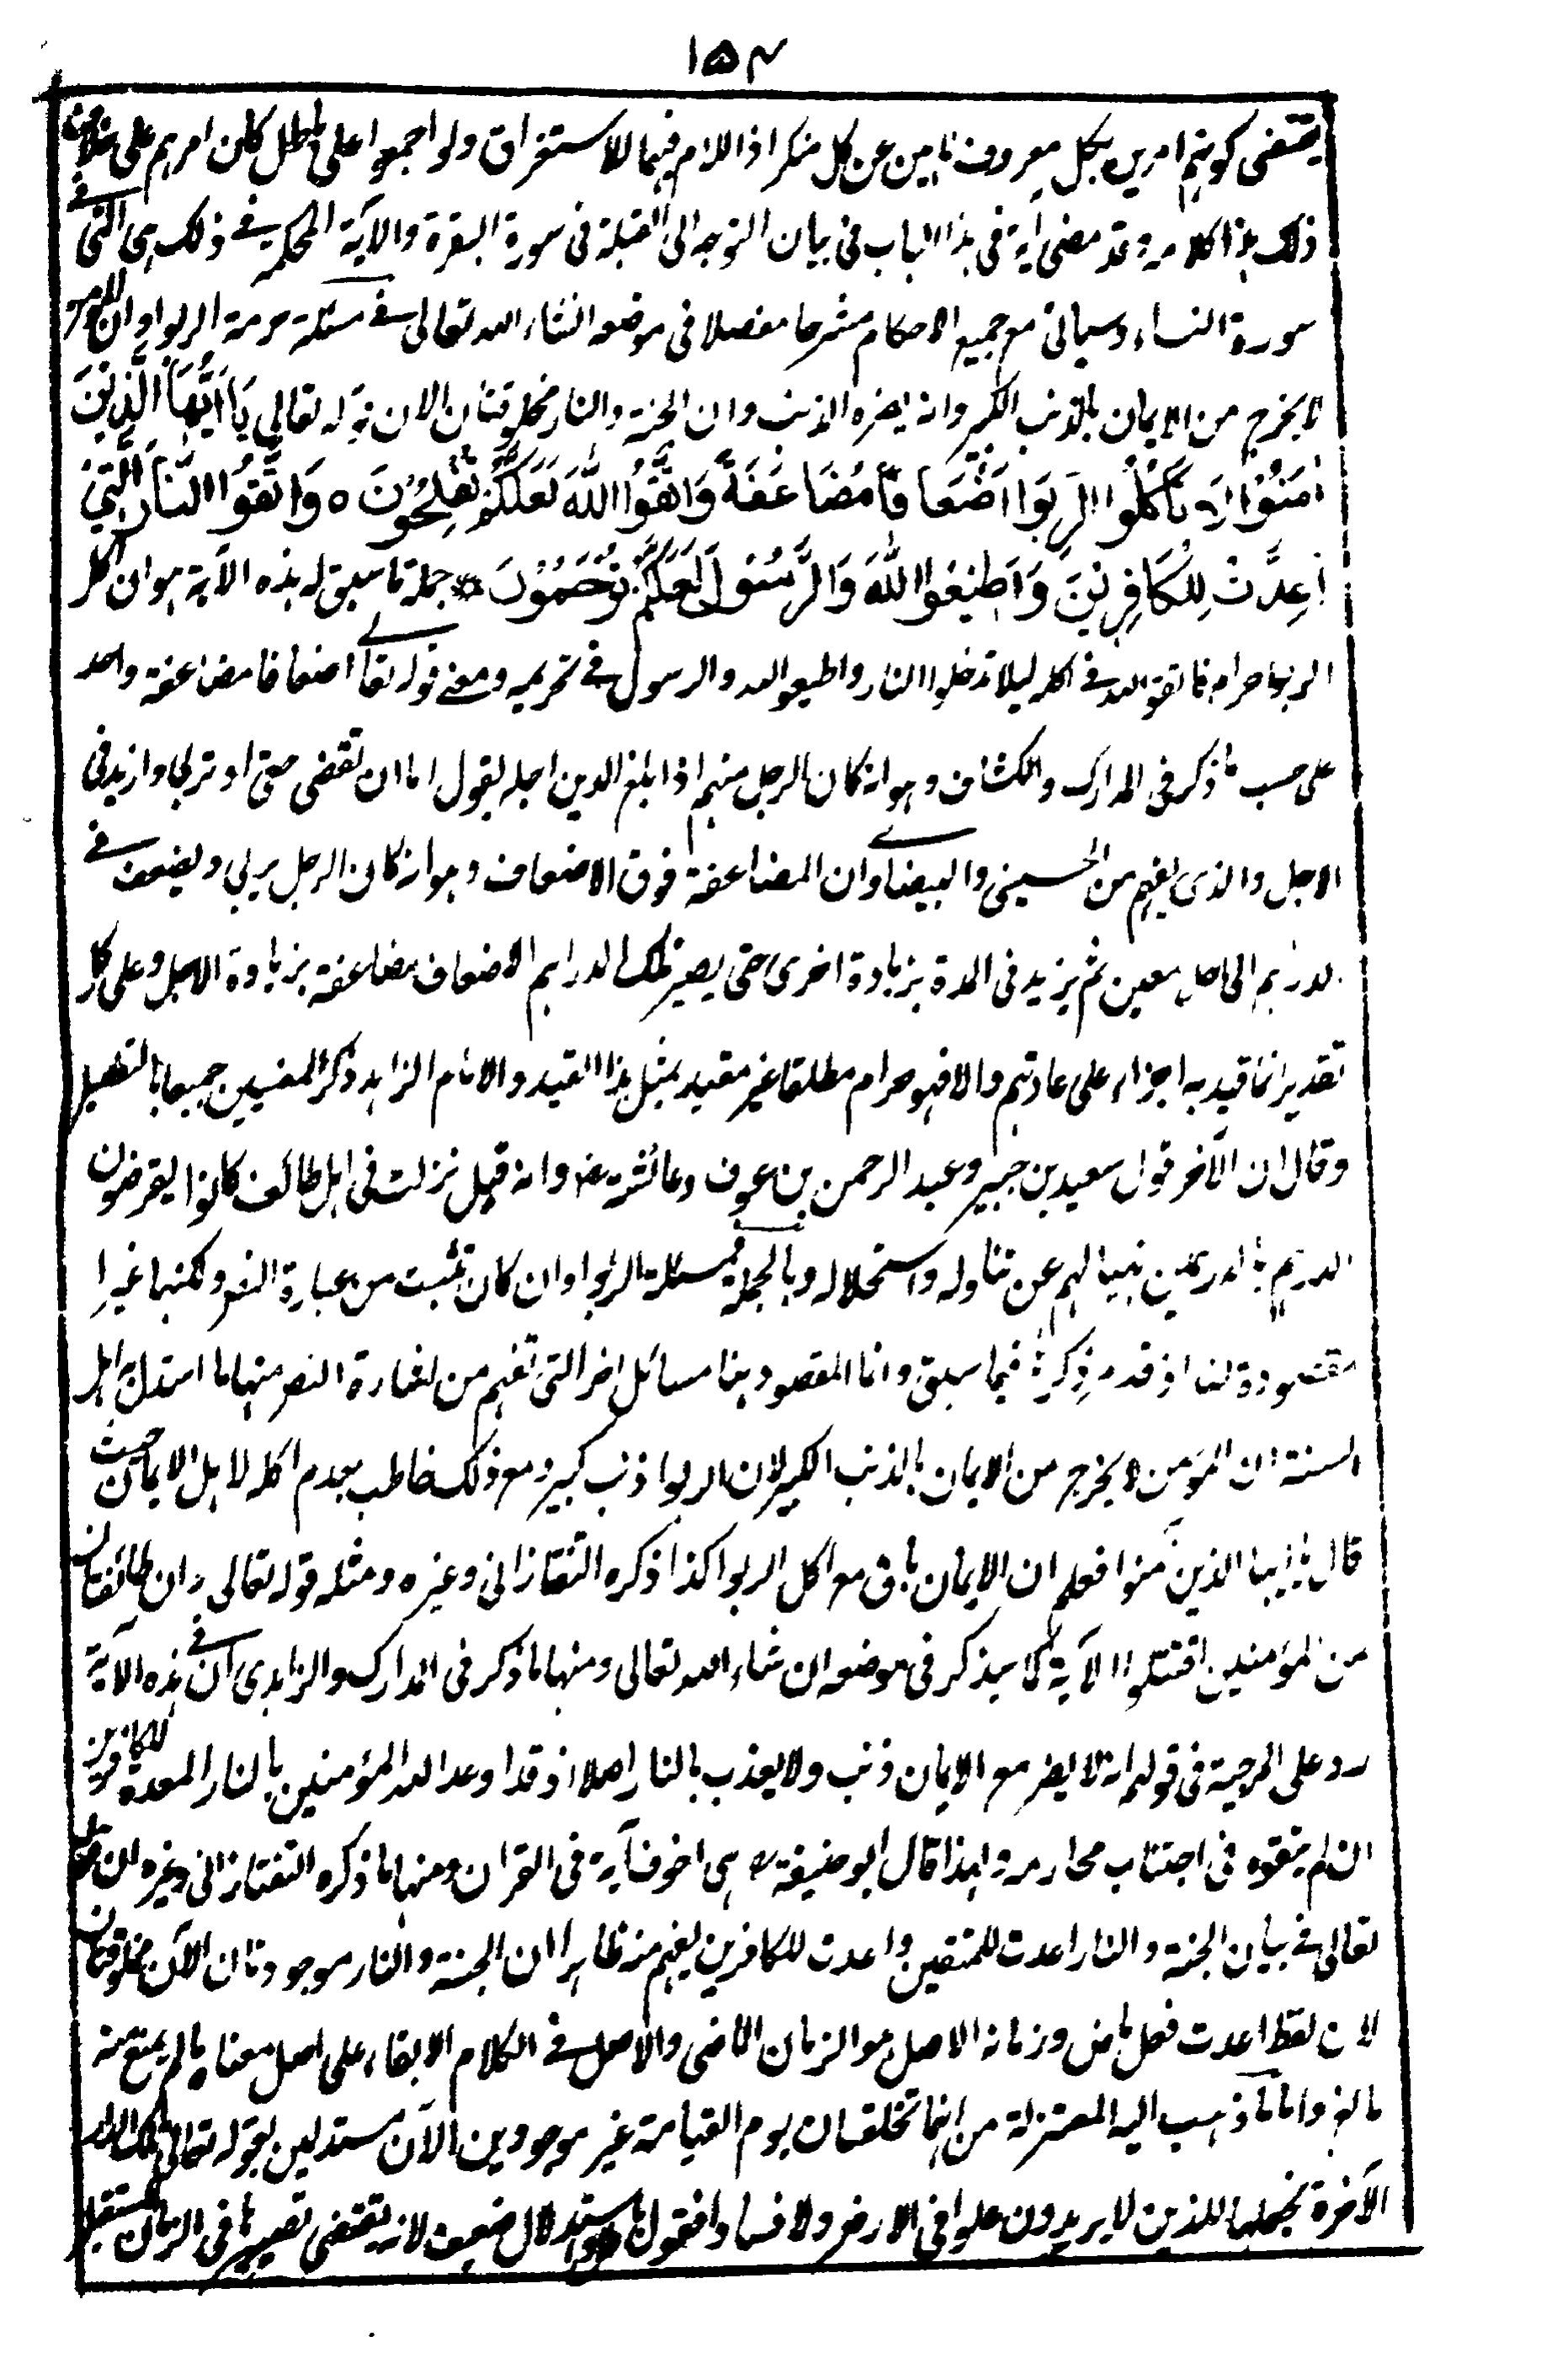 ١٥٤
يقتضى كونهم امرين بكل معروف ناهين عن كل منكر اذ اللام فيهما للاستغراق ولو اجمعوا على باطل كان امرهم على خلاف
ذلك هذا كلامه وقد مضى اية فى هذا الباب فى بيان التوجه الى القبلة فى سورة البقرة والآية المحكمة فى ذلك هى التى فى
سورة النساء وسياتى مع جميع الاحكام مشرحا مفصلا فى موضعه انشاء الله تعالى فى مسئلة حرمة الربوا وان المؤمن
لا يخرج من الايمان بالذنب الكبير وانه يضره الذنب وان الجنة والنار مخلوقتان الان قوله تعالى يَا أَيُّهَا الَّذِيْنَ
اٰمَنُوْا لَا تَأْكُلُوا الرِّبَوا اَضْعَافًا مُضَاعَفَةً وَاتَّقُوا اللّٰهَ لَعَلَّكُمْ تُفْلِحُوْنَ ٥ وَاتَّقُوا النَّارَ الَّتِيْ
اُعِدَّتْ لِلْكَافِرِيْنَ وَاَطِيْعُوا اللّٰهَ وَالرَّسُوْلَ لَعَلَّكُمْ تُرْحَمُوْنَ جملة ما سيق له هذه الآية هو ان اكل
الربوا حرام فاتقوا الله فى اكله ليلا تدخلوا النار واطيعوا الله والرسول فى تحريمه ومعنى قوله تعالى اضعافا مضاعفة واحد
على حسب ما ذكر فى المدارك والكشاف وهو انه كان الرجل منهم اذا بلغ الدين اجله يقول اما ان تقضى حقى او تربى وازيد فى
الاجل والذى يفهم من الحسينى والبيضاوى ان المضاعفة فوق الاضعاف وهو انه كان الرجل يربى ويضعف فى
الدرهم الى اجل معين ثم يزيد فى المدة بزيادة اخرى حتى يصير تلك الدراهم الاضعاف مضاعفة بزيادة الاجل وعلى كل
تقدير انما قيد به اجزاء على عادتهم والا فهو حرام مطلقا غير مقيد بمثل هذا القيد والامام الزاهد ذكر المعنيين جميعا بالتفصيل
وقال ان الآخر قول سعيد بن جبير وعبد الرحمن بن عوف وعائشة رض وانه قيل نزلت فى اهل طائف كانوا يقرضون
الدرهم بالدرهمين نهيا لهم عن تناوله واستحلاله وبالجملة فمسئلة الربوا وان كان تثبت من عبارة النص ولكنها غير
مقصودة لنا اذ قد مر ذكره فيما سبق وانما المقصود هنا مسائل اخر التى تفهم من اشارة النص منها ما استدل به اهل
السنة ان المؤمن لا يخرج من الايمان بالذنب الكبير لان الربوا ذنب كبير ومع ذلك خاطب بعدم اكله لاهل الايمان حيث
قال يا ايها الذين آمنوا فعلم ان الايمان باق مع اكل الربوا كذا ذكره التفتازانى وغيره ومثله قوله تعالى وان طائفتان
من المؤمنين اقتتلوا الآية كما سيذكر فى موضعه ان شاء الله تعالى ومنها ما ذكر فى المدارك والزاهدى ان فى هذه الآية
رد على المرجية فى قولهم انه لا يضر مع الايمان ذنب ولا يعذب بالنار اصلا اذ قد اوعد الله المؤمنين بالنار المعدة للكافرين
ان لم يتقوه فى اجتناب محارمه ولهذا قال ابو حنيفة رح هى اخوف آية فى القران ومنها ما ذكره التفتازانى وغيره ان قوله
تعالى فى بيان الجنة والنار اعدت للمتقين واعدت للكافرين يفهم منه ظاهرا ان الجنة والنار موجودتان الآن مخلوقتان
لان لفظ اعدت فعل ماض وزمانه الاصل هو الزمان الماضى والاصل فى الكلام الابقاء على اصل معناه ما لم يمتع منه
مانع واما ما ذهب اليه المعتزلة من انهما تخلقان يوم القيامة غير موجودين الآن مستدلين بقوله تعالى تلك الدار
الآخرة نجعلها للذين لا يريدون علوا فى الارض ولا فسادا فقول استدلال ضعيف لانه يقتضى تصييرها فى الزمان المستقبل